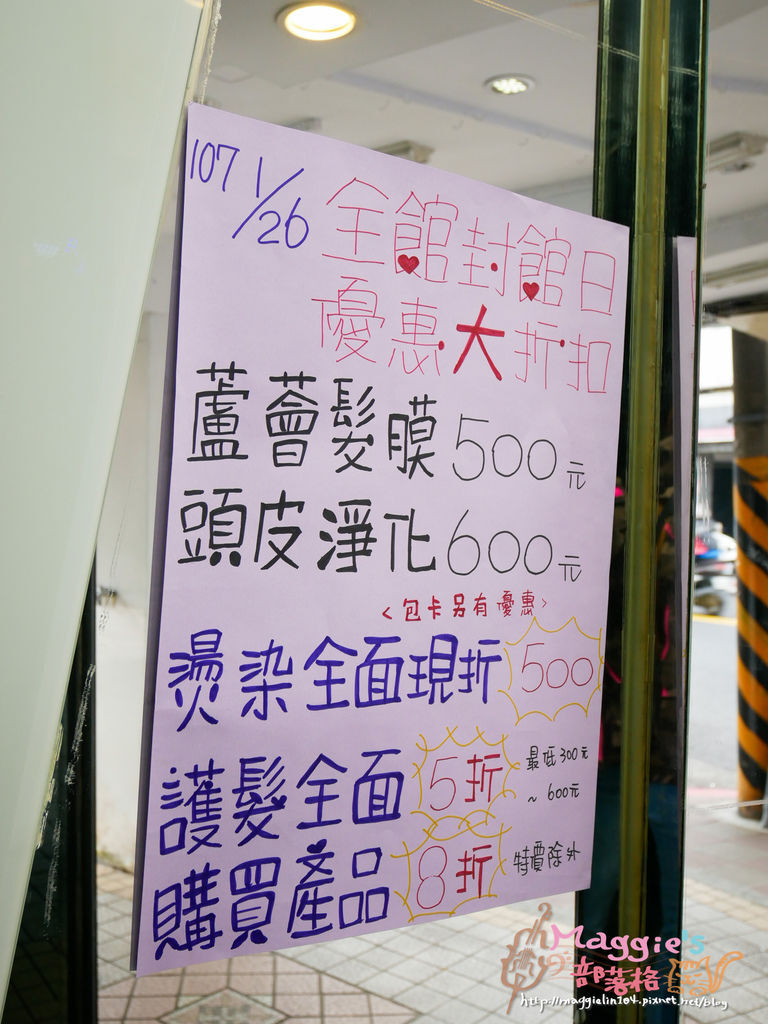 107 1/26 全館封館日
優惠大折扣
蘆薈髮膜500元
頭皮淨化600元
<包卡另有優惠>
燙染全面現折500
護髮全面5折 最低300元
~600元
購買產品8折 特價除外
Maggie's
部落格
http://maggielin104.pixnet.net/blog